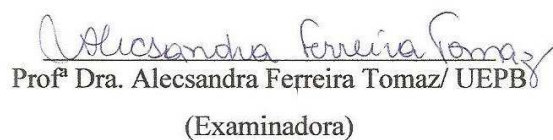 Alecsandra Ferreira Tomaz
Profª Dra. Alecsandra Ferreira Tomaz/ UEPB
(Examinadora)